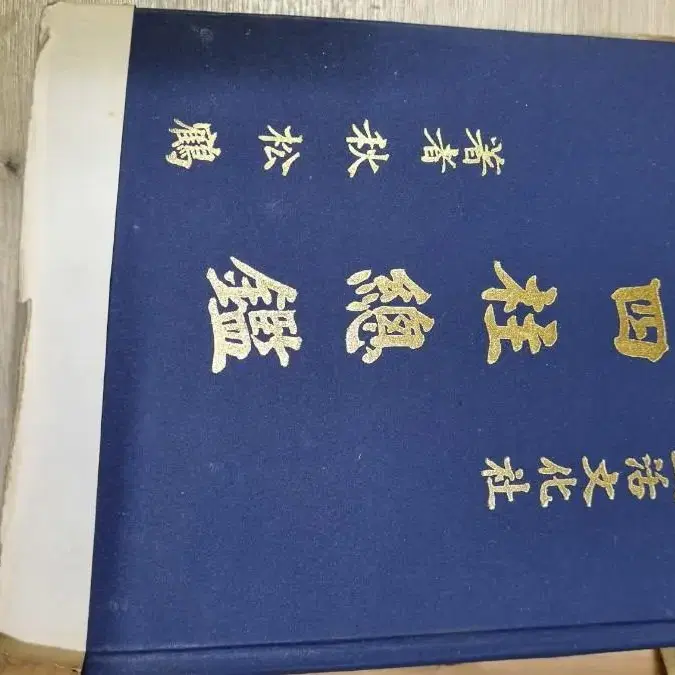 活文化社
四柱總鑑
著者 秋松鶴